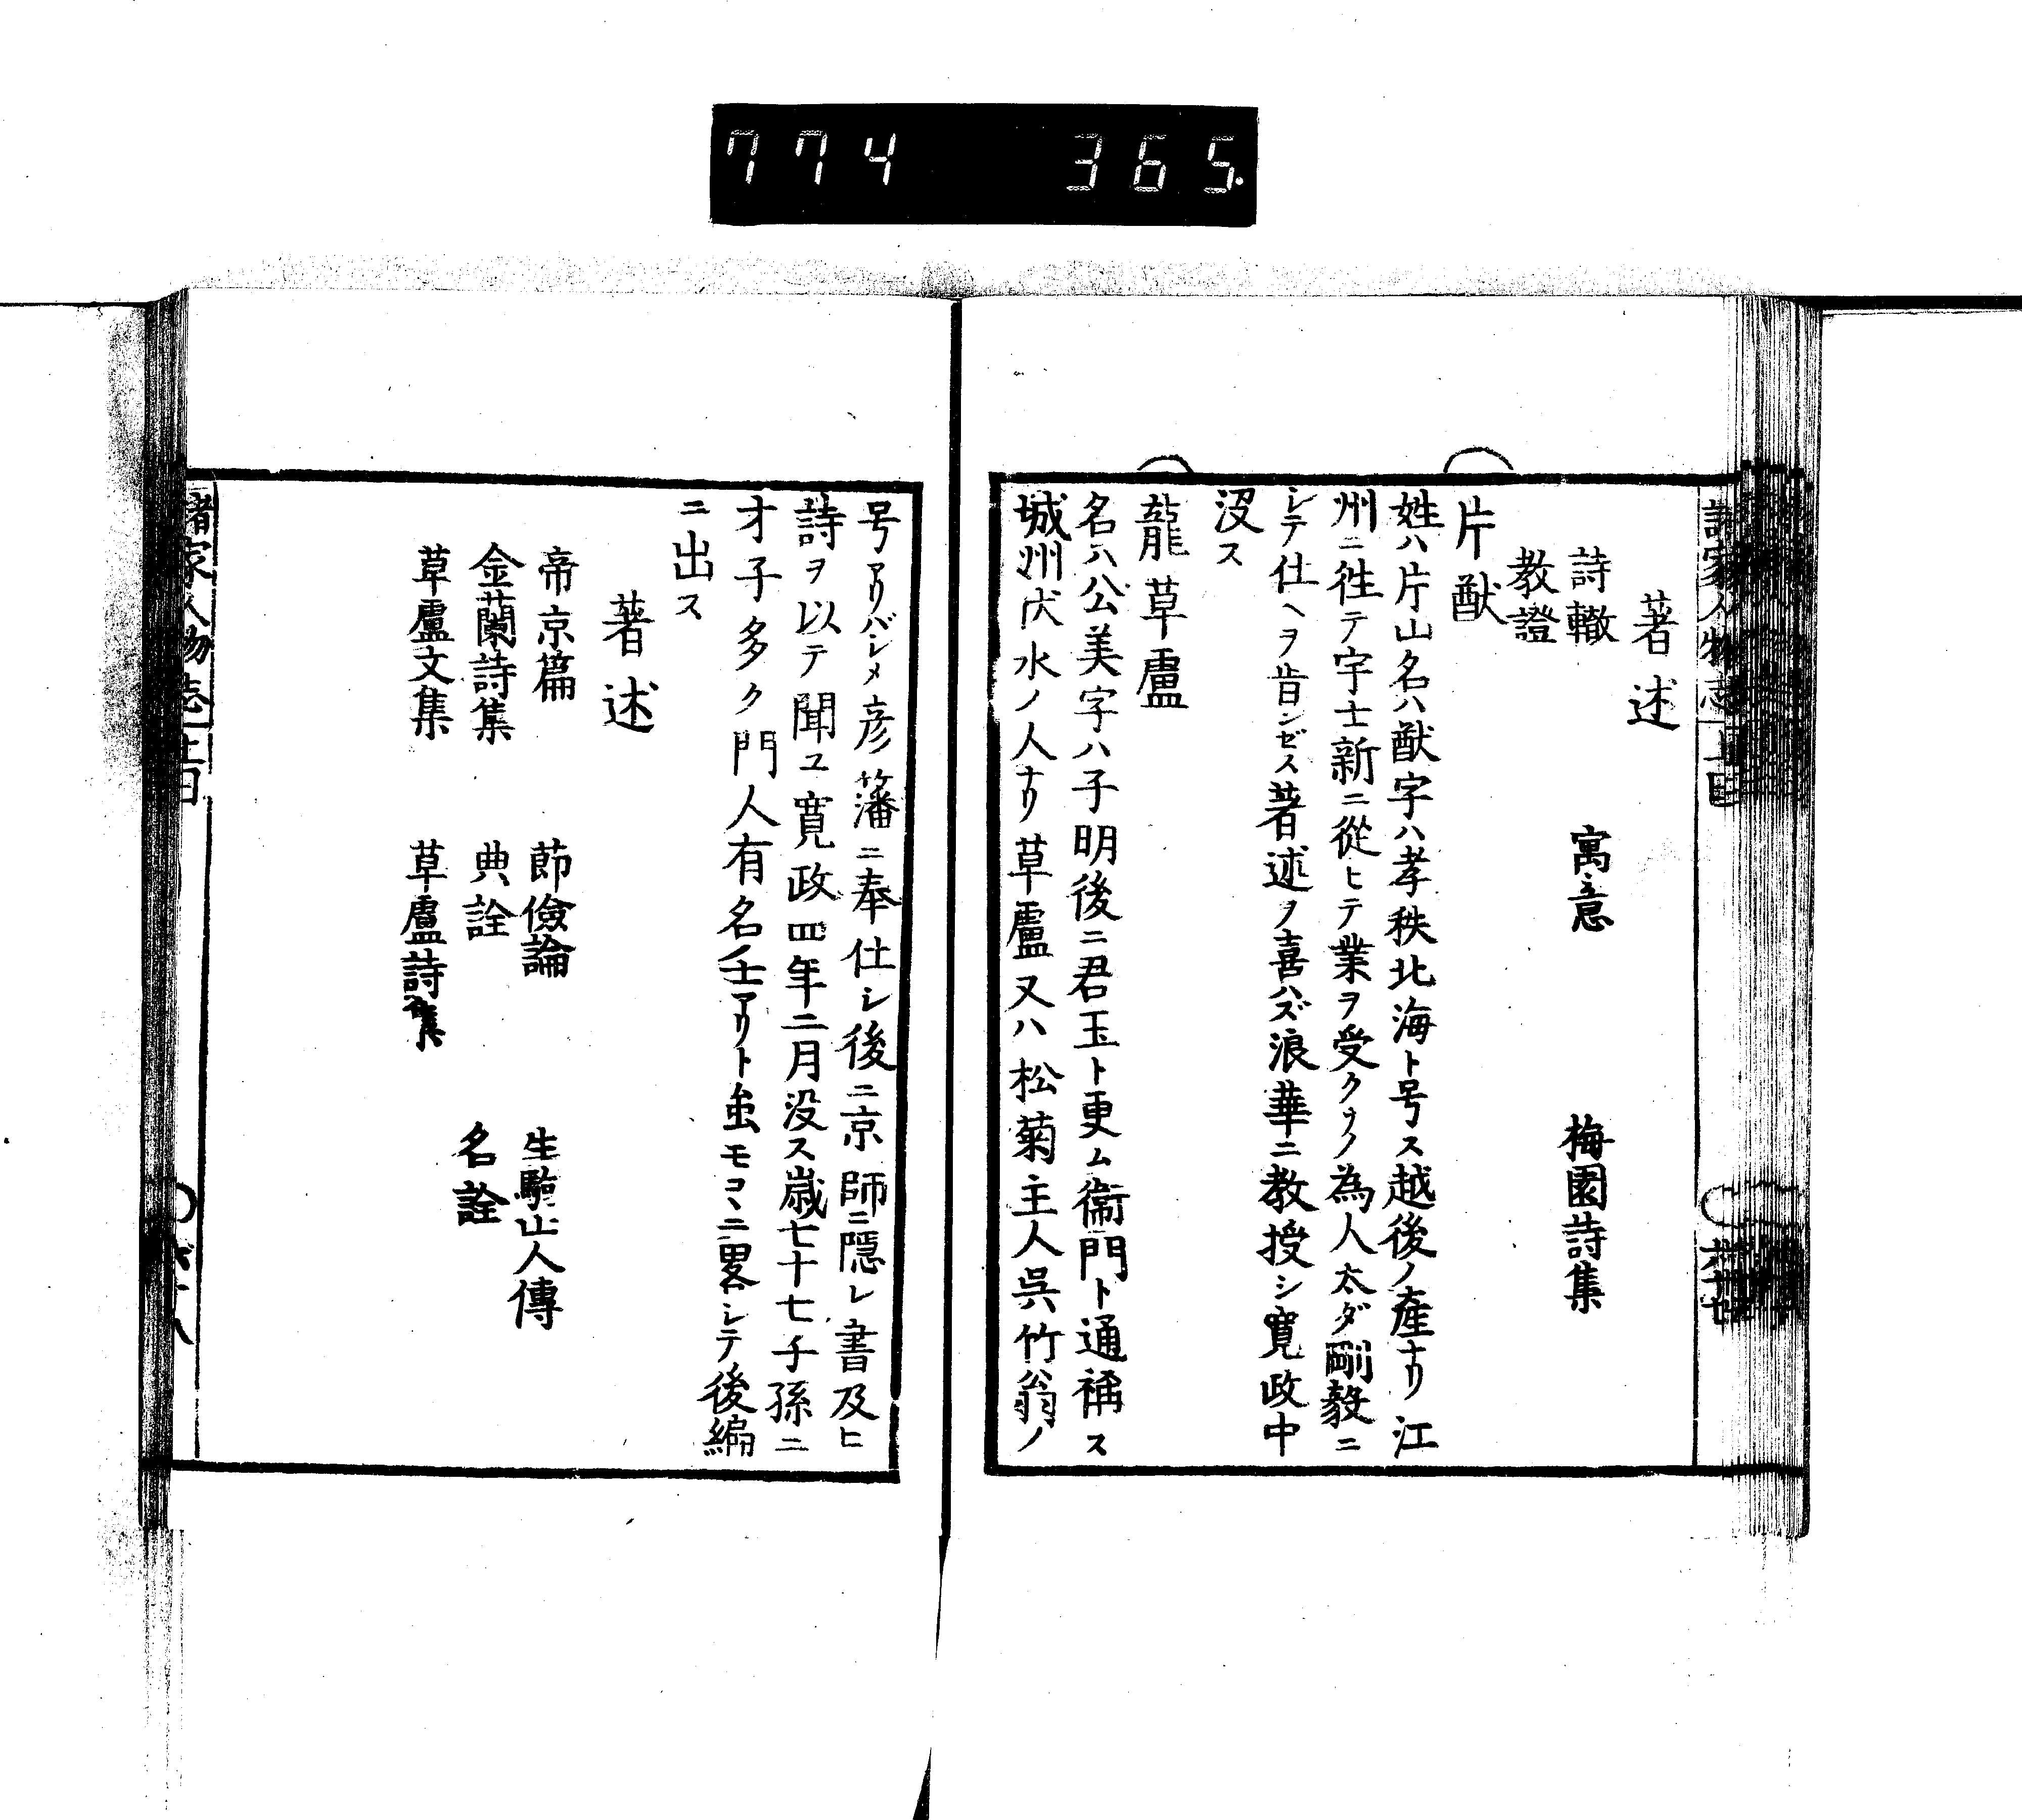 774 365.
著述
詩轍 寓意 梅園詩集
教證
片猷
姓ハ片山名ハ猷字ハ孝秩北海ト号ス越後ノ產ナリ江
州ニ徃テ宇士新ニ從ヒテ業ヲ受ク其ノ為人太ダ剛毅ニ
シテ仕ヘヲ肯ンゼス著述ヲ喜ハズ浪華ニ教授シ寛政中
沒ス
龍草盧
名ハ公美字ハ子明後ニ君玉ト更ム衞門ト通稱ス
城州伏水ノ人ナリ草盧又ハ松菊主人呉竹翁ノ
号アリハシメ彦藩ニ奉仕シ後ニ京師ニ隱レ書及ヒ
詩ヲ以テ聞ユ寛政四年二月没ス歳七十七子孫ニ
才子多ク門人有名ノ士アリト虽モコヽニ畧シテ後編
ニ出ス
著述
帝京篇 節儉論 生駒山人傳
金蘭詩集 典詮 名詮
草盧文集 草盧詩集
諸家人物志 上